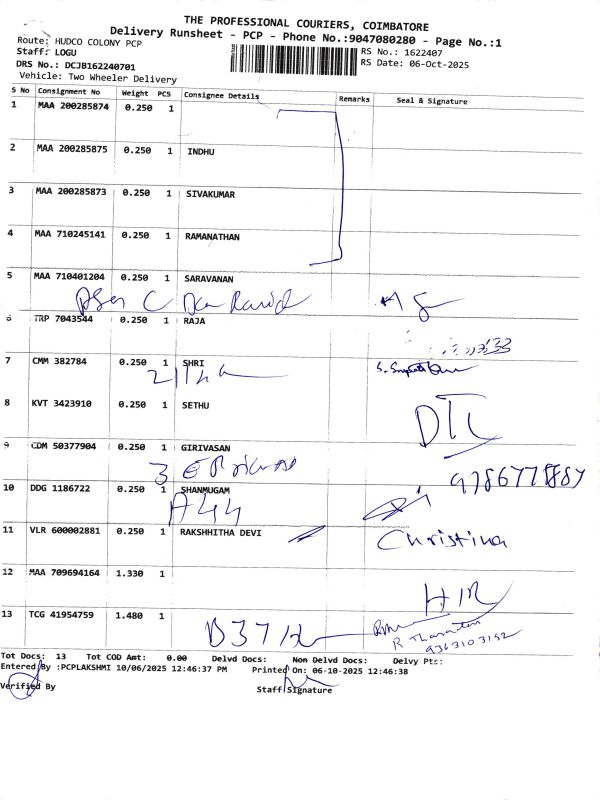 THE PROFESSIONAL COURIERS, COIMBATORE
Delivery Runsheet - PCP - Phone No.:9047080280 - Page No.:1
Route: HUDCO COLONY PCP
Staff: LOGU
RS No.: 1622407
DRS No.: DCJB162240701
RS Date: 06-Oct-2025
Vehicle: Two Wheeler Delivery
S No Consignment No Weight PCS Consignee Details Remarks Seal & Signature
1 MAA 200285874 0.250 1
2 MAA 200285875 0.250 1 INDHU
3 MAA 200285873 0.250 1 SIVAKUMAR
4 MAA 710245141 0.250 1 RAMANATHAN
5 MAA 710401204 0.250 1 SARAVANAN
6 TRP 7043544 0.250 1 RAJA
7 CMM 382784 0.250 1 SHRI
8 KVT 3423910 0.250 1 SETHU
9 CDM 50377904 0.250 1 GIRIVASAN
3 E
10 DDG 1186722 0.250 1 SHANMUGAM
A44
11 VLR 600002881 0.250 1 RAKSHHITHA DEVI
Christina
12 MAA 709694164 1.330 1
13 TCG 41954759 1.480 1
B37
9363103152
Tot Docs: 13 Tot COD Amt: 0.00 Delvd Docs: Non Delvd Docs: Delvy Pts:
Entered By :PCPLAKSHMI 10/06/2025 12:46:37 PM Printed On: 06-10-2025 12:46:38
Verified By
Staff Signature